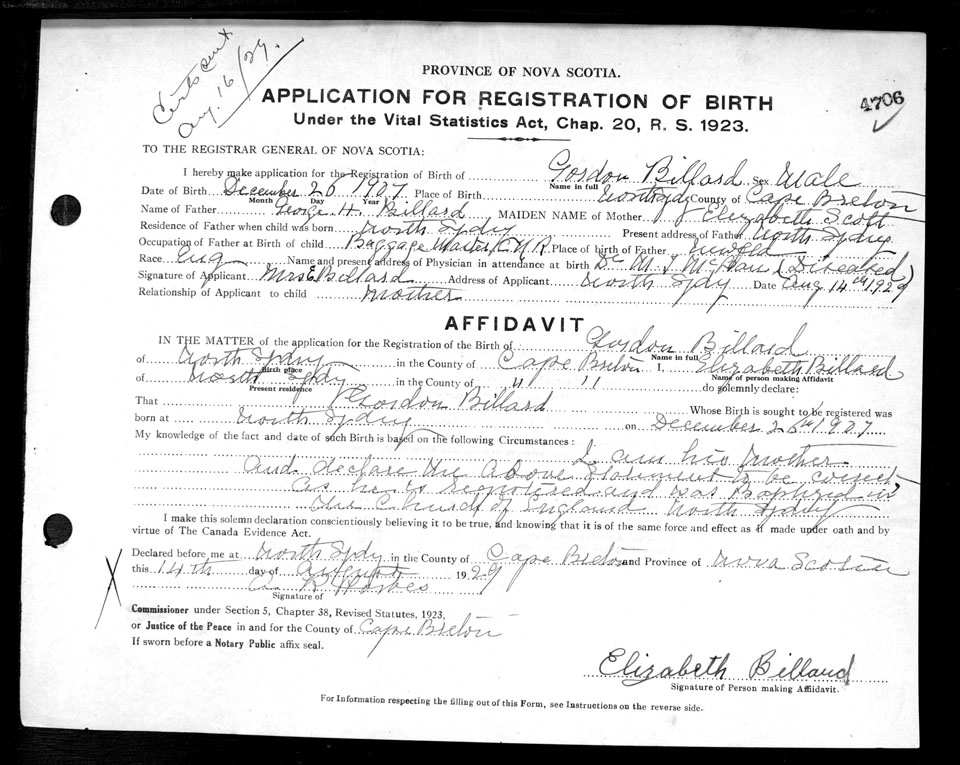 Certs sent
Aug. 16/29.
4706
PROVINCE OF NOVA SCOTIA.
APPLICATION FOR REGISTRATION OF BIRTH
Under the Vital Statistics Act, Chap. 20, R. S. 1923.
TO THE REGISTRAR GENERAL OF NOVA SCOTIA:
I hereby make application for the Registration of Birth of Gordon Billard Sex Male
Name in full
Date of Birth December 26 1907 Place of Birth North Sydy County of Cape Breton
Month Day Year
Name of Father George H. Billard MAIDEN NAME of Mother Elizabeth Scott
Residence of Father when child was born North Sydy Present address of Father North Sydney
Occupation of Father at Birth of child Baggage Master C.N.R. Place of birth of Father Newfld
Race Eng Name and present address of Physician in attendance at birth Dr M. J. (Diseased)
Signature of Applicant Mrs E Billard Address of Applicant North Sydy Date Aug 14th 1929
Relationship of Applicant to child Mother
AFFIDAVIT
IN THE MATTER of the application for the Registration of the Birth of Gordon Billard
Name in full
of North Sydny in the County of Cape Breton I, Elizabeth Billard
Birth place Name of person making Affidavit
of North Sydy in the County of " " do solemnly declare:
Present residence
That Gordon Billard Whose Birth is sought to be registered was
born at North Sydny on December 26th 1907
My knowledge of the fact and date of such Birth is based on the following Circumstances:
I am his Mother
and declare the above statement to be correct
as he is registered and was Baptized in
the Church of England North Sydny
I make this solemn declaration conscientiously believing it to be true, and knowing that it is of the same force and effect as if made under oath and by
virtue of The Canada Evidence Act.
Declared before me at North Sydy in the County of Cape Breton and Province of Nova Scotia
this 14th day of August 1929
Signature of
Commissioner under Section 5, Chapter 38, Revised Statutes, 1923,
or Justice of the Peace in and for the County of Cape Breton
If sworn before a Notary Public affix seal.
Elizabeth Billard
Signature of Person making Affidavit.
For Information respecting the filling out of this Form, see Instructions on the reverse side.